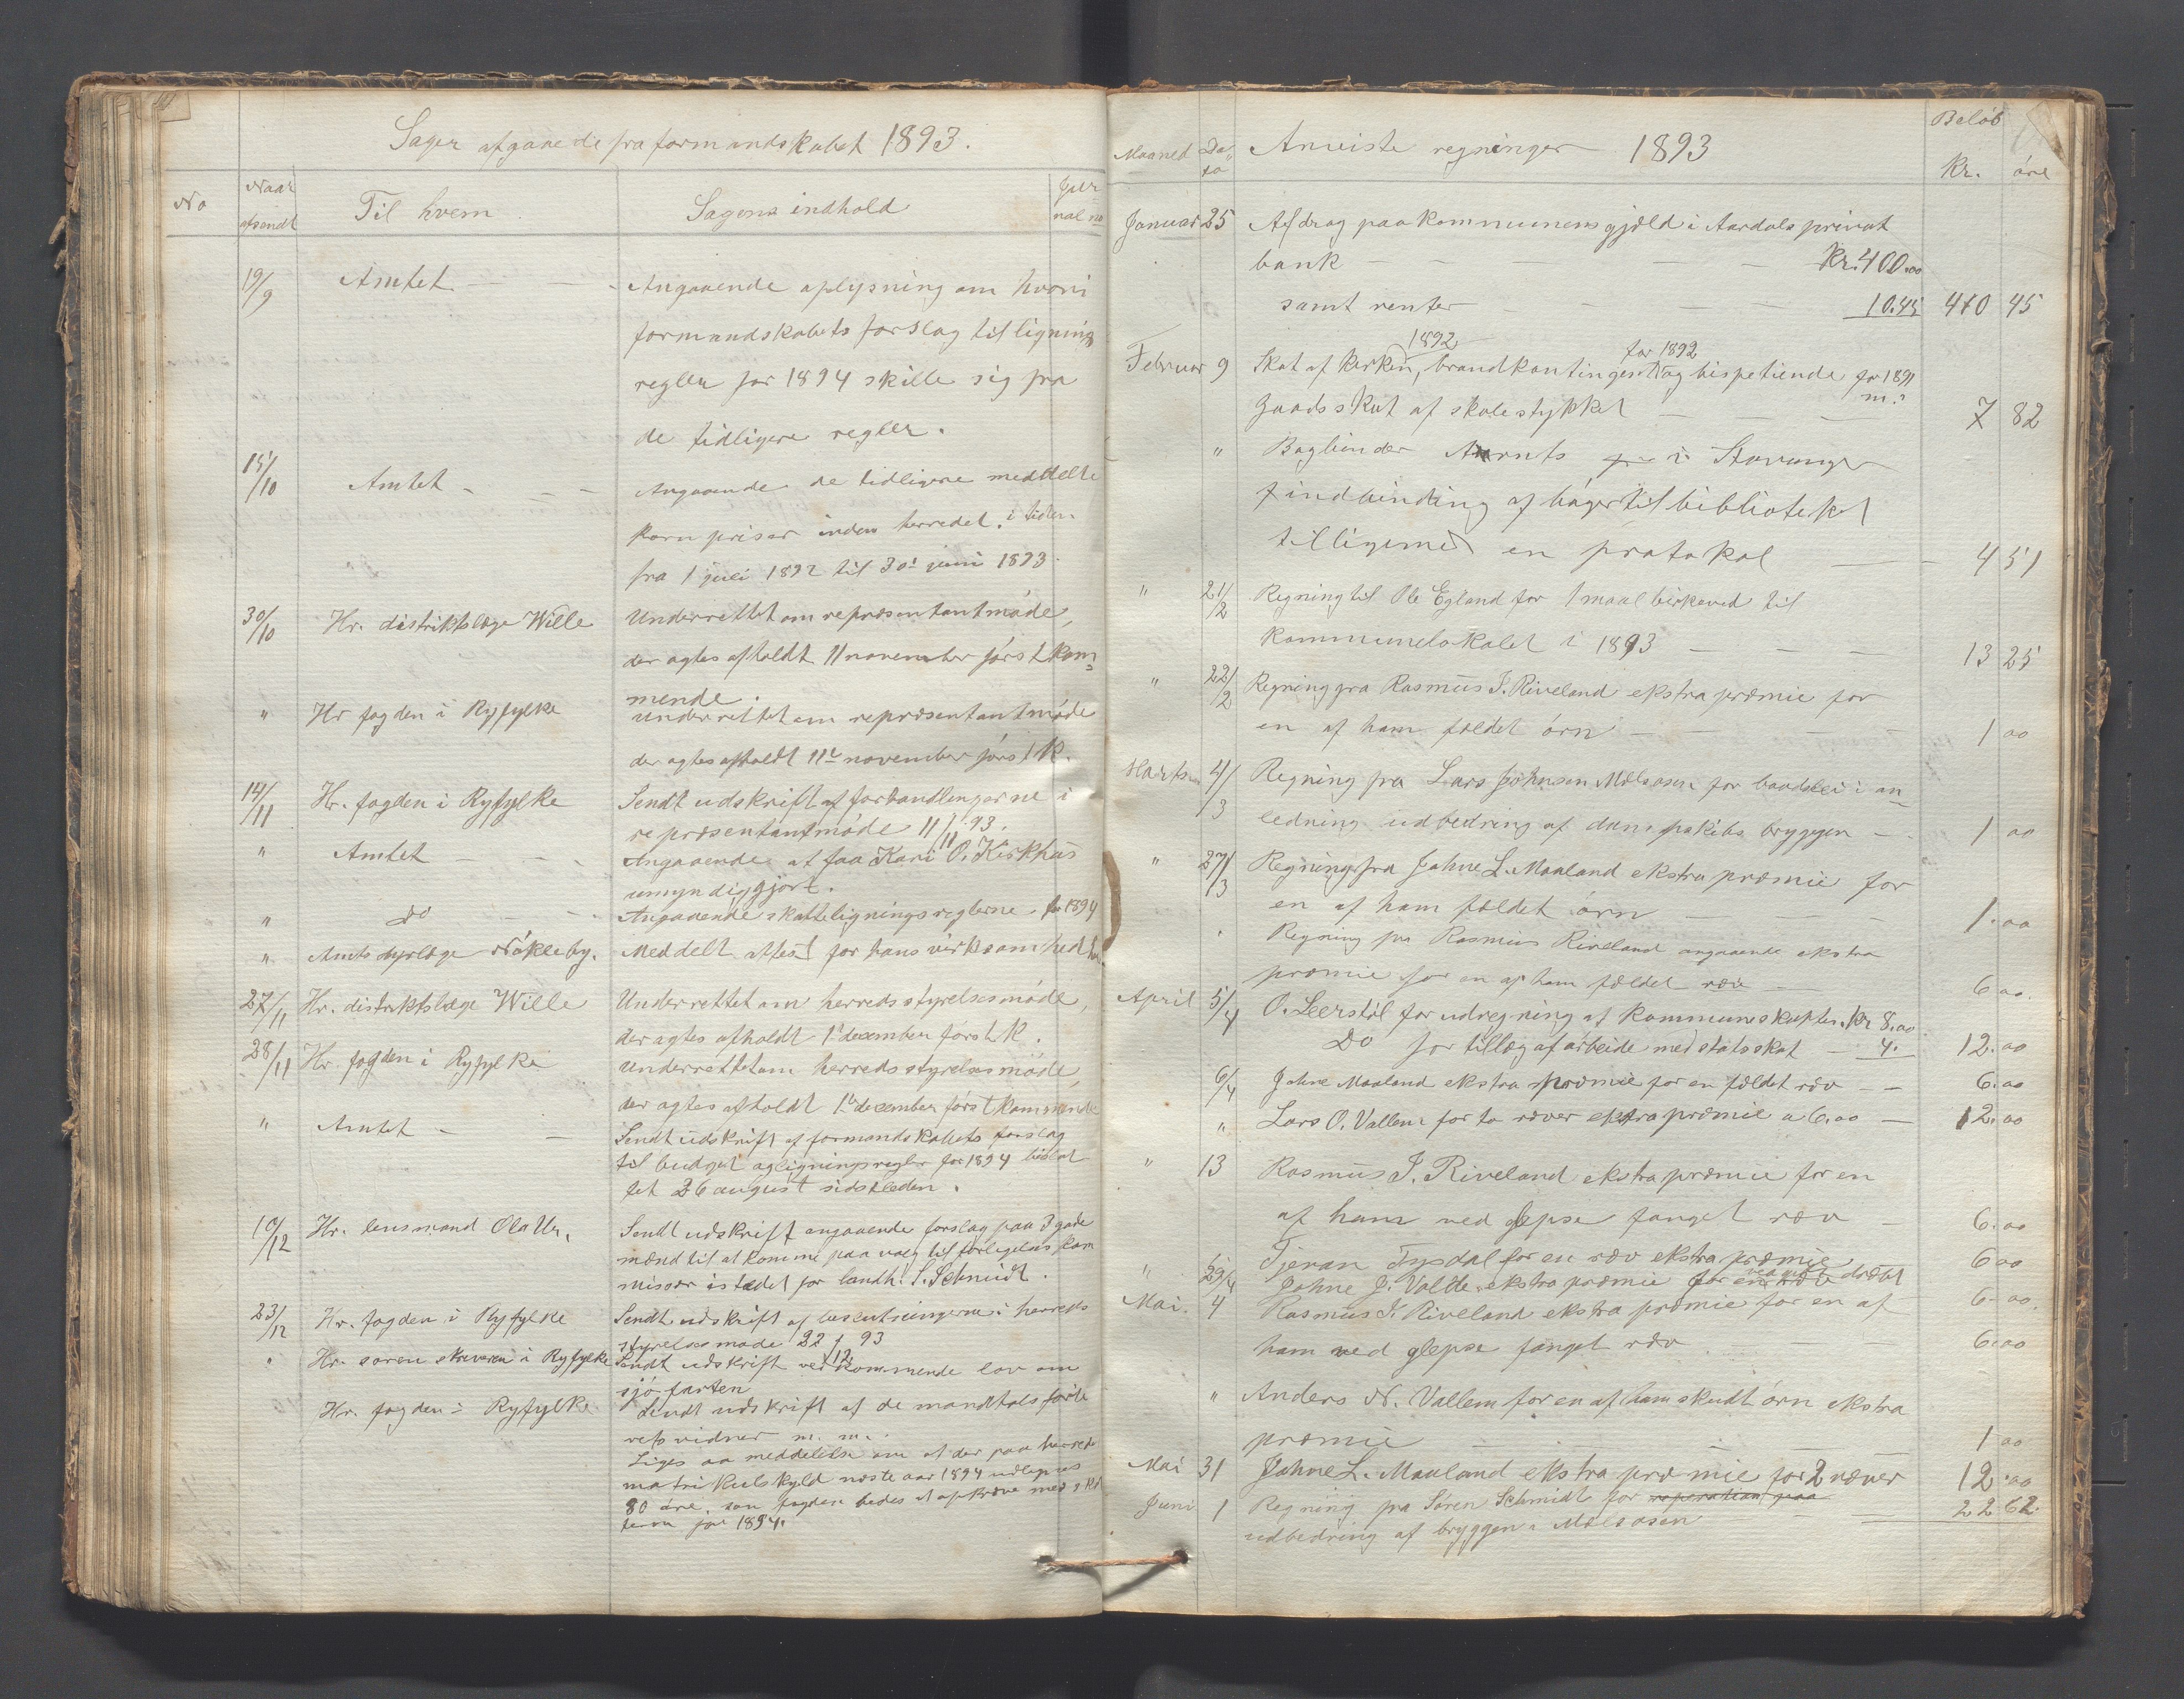 Sager afgaaende fra formandskabet 1893.
No
Naar afsendt
Til hvem
Sagens indhold
Jurnal no
19/9 Amtet — — Angaaende oplysning om hvori
formandskabets forslag til lignings
regler for 1894 skille sig fra
de tidligere regler.
15/10 Amtet - - - Angaaende de tidligere meddelte
kornpriser inden herredet i tiden
fra 1 juli 1892 til 30' juni 1893.
30/10 Hr. distriktslæge Wille Underrettet om repræsentantmøde,
der agtes afholdt 11 november først kom=
mende.
" Hr fogden i Ryfylke Underrettet om repræsentantmøde
der agtes afholdt 11te november først k.
14/11 Hr. fogden i Ryfylke Sendt udskrift af forhandlingerne i
repræsentantmøde 11/11 93.
" Amtet — - - Angaaende at faa Kari O. Kirkhus
umyndiggjort.
" Do — - Angaaende skatteligningsreglerne for 1894
" Amtsdyrlæge Nøkleby. Meddelt attest for hans virksomhed
27/11 Hr. distriktslæge Wille Underrettet om herredsstyrelsesmøde,
der agtes afholdt 1' december først k.
28/11 Hr. fogden i Ryfylke Underrettet om herredsstyrelsesmøde,
der agtes afholdt 1' december først kommende
" Amtet - — Sendt udskrift af formandskabets forslag
til budget og ligningsregler for 1894 beslut
tet 26 august sidstleden.
10/12 Hr. lensmand Ola Ur. Sendt udskrift angaaende forslag paa 3 gode
mænd til at komme paa valg til forligelses kom
missær istedet for landh. S. Schmidt.
23/12 Hr. fogden i Ryfylke Sendt udskrift af beslutningerne i herreds
styrelsesmøde 22/12 93
" Hr. sorenskriveren i Ryfylke Sendt udskrift vedkommende lov om
sjøfarten
Hr. fogden i Ryfylke Sendt udskrift af de mandtalsførte
retsvidner m. m.
Liges aa meddelelse om at der paa herreds
matrikulskyld næste aar 1894 udlignes
80 øre, som fogden bedes at opkræve med 2
for 1894.
Maaned
Dato
Anviste regninger 1893
Beløb
Kr. øre
Januar 25 Afdrag paa kommunens gjæld i Aardals privat
bank — — — — — Kr. 400.00
samt renter — — — 10.45 410 45
1892 for 1892
Februar 9 Skat af kirken, brandkontingent og bispetiende for 1891
m.:
Godsskat af skolestykket — — 7 82
" Bogbinder Aarnts i Stavanger
f indbinding af bøger til bibliotekel
tilligemed en protokol — — 4 51
" 21/2 Regning til Ole Egland for 1 maal birkeved til
kommunelokalet i 1893 — — — 13 25
" 22/2 Regning fra Rasmus J. Riveland ekstra præmie for
en af ham fældet ørn — — — — 1 00
Marts 4/3 Regning fra Lars Johnsen Mælsosen for baadslei i an=
ledning udbedring af dampskibs bryggen — - 1 00
" 27/3 Regning fra Jahne L. Maaland ekstra præmie for
en af ham fældet ørn — — — 1.00
Regning fra Rasmus Riveland angaaende ekstra
præmie for en af ham fældet ræv — 6 00.
April 5/4 O. Leerstøl for udregning af kommuneskatten. Kr 8.00
Do for tillæg af arbeide med statsskat — 4. 12.00
6/4 Jahne Maaland ekstra præmie for en fældet ræv — — 6.00
" Lars O. Vallem for to ræver ekstra præmie a 6.00 — 12.00
" 13 Rasmus J. Riveland ekstra præmie for en
af ham ved glepse fanget ræv — 6.00
Tjeran Tysdal for en ræv ekstra præmie 6 00
" 29/4 Jahne J. Valde ekstra præmie for en ræv dræbt 6.00.
Mai. 4 Rasmus J. Riveland ekstra præmie for en af
ham ved glepse fanget ræv — — 6.00
" Anders N. Vallem for en af ham skudt ørn ekstra
præmie — — — — 1 00
Mai 31 Jahne L. Maaland ekstra præmie for 2 ræver 12.00
Juni 1 Regning fra Søren Schmidt for reperation paa
udbedring af bryggen i Mælsosen — — 22 62.